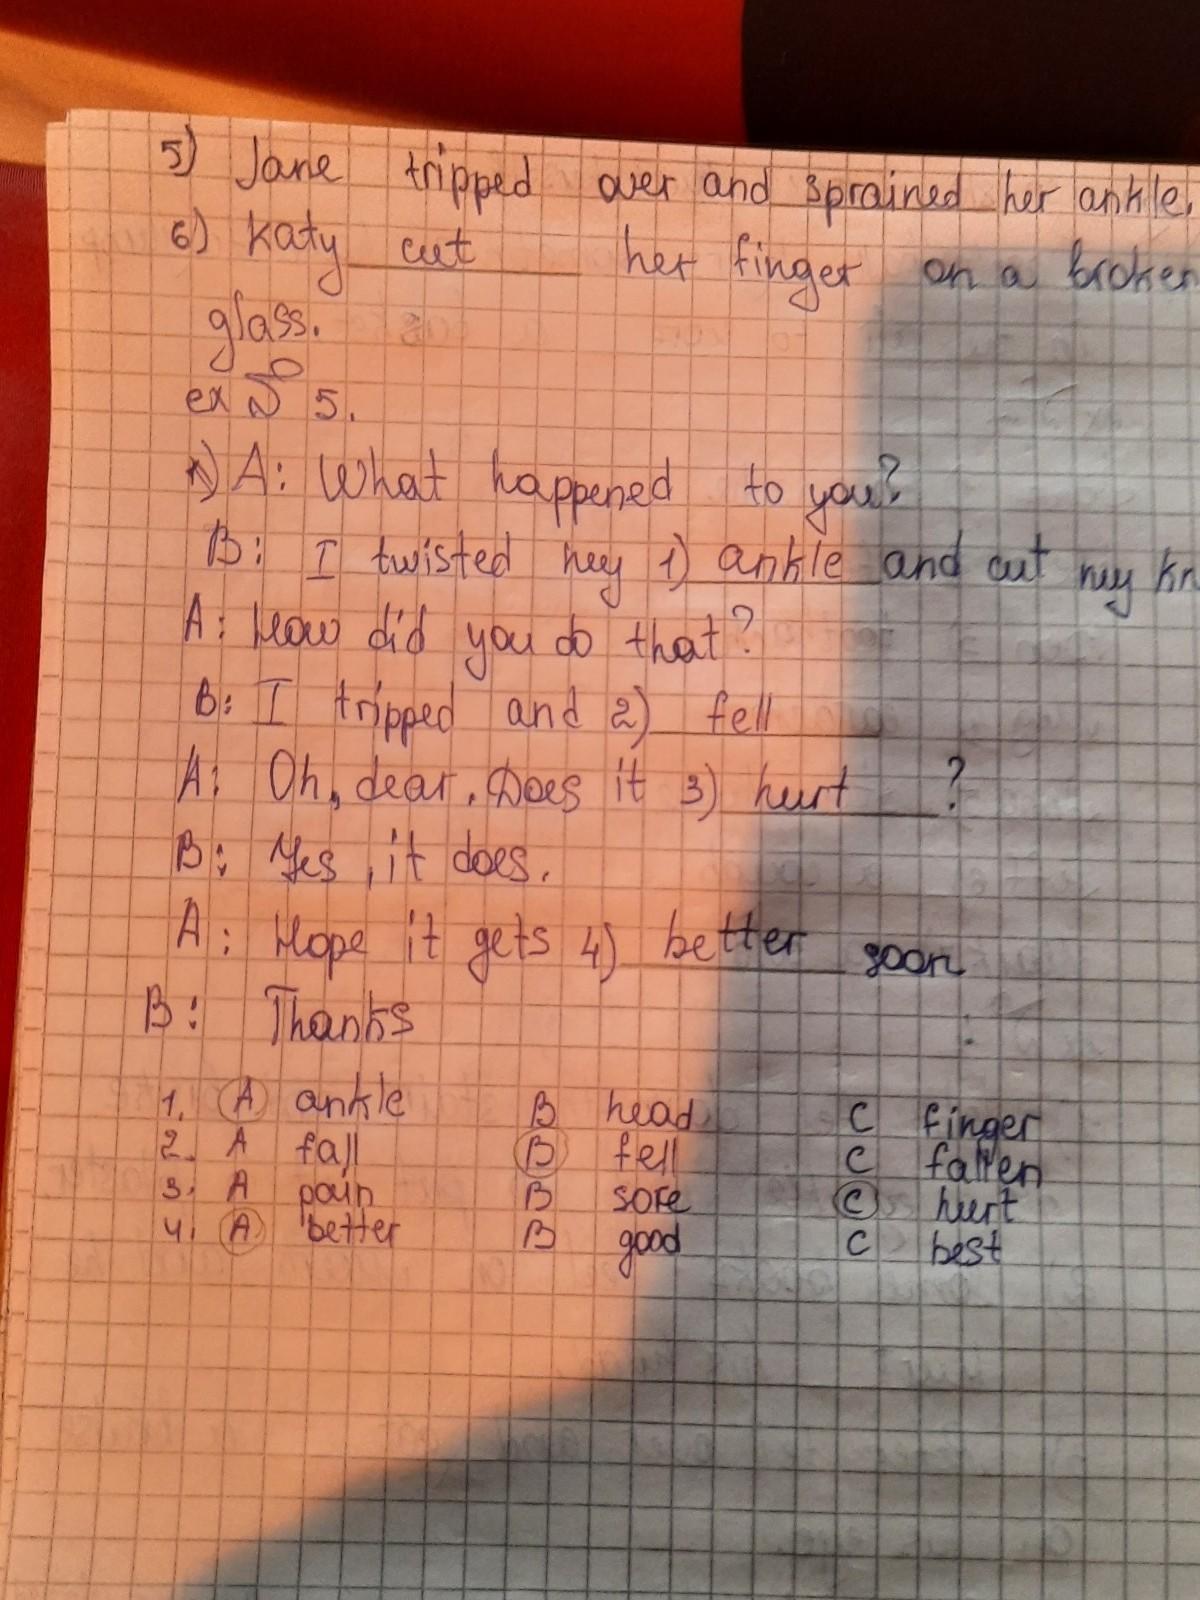 5) Jane tripped over and sprained her ankle.
6) Katy cut her finger on a broken
glass.
ex № 5.
1) A: What happened to you?
B: I twisted my 1) ankle and cut my kn
A: How did you do that?
B: I tripped and 2) fell
A: Oh, dear. Does it 3) hurt ?
B: Yes, it does.
A: Hope it gets 4) better soon
B: Thanks
1. A ankle B head C finger
2. A fall B fell C fallen
3. A pain B sore C hurt
4. A better B good C best